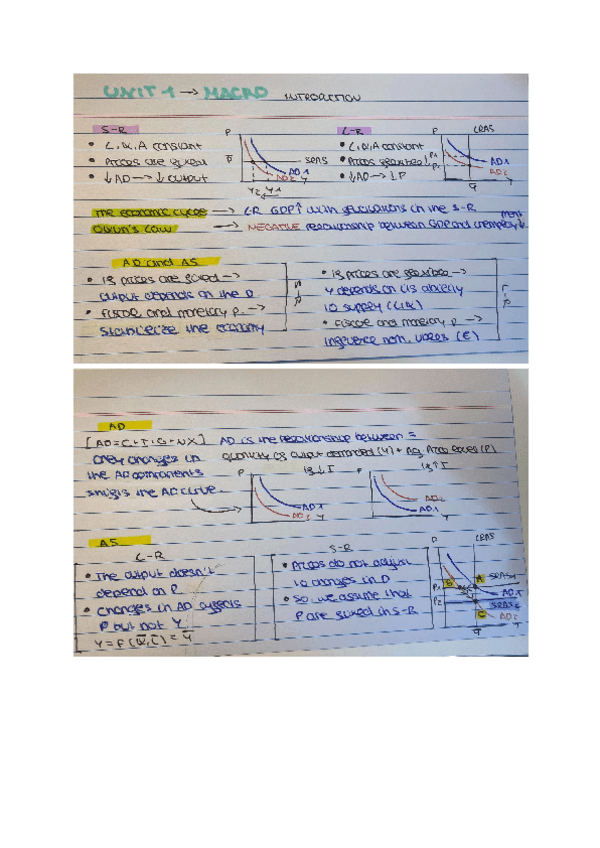 UNIT 1 → MACRO INTRODUCTION
S-R
• L, K, A constant
• Prices are fixed
• ↓AD → ↓ output
P
P̄
SRAS
AD1
AD2
Y2 Y1
Y
L-R
• L, K, A constant
• Prices flexible
• ↓AD → ↓P
P
LRAS
P1
P2
AD1
AD2
Ȳ
Y
The economic cycle → L-R GDP↑ with fluctuations in the S-R
Okun's Law → NEGATIVE relationship between GDP and unemployment
AD and AS
• If prices are fixed →
output depends on the D
• Fiscal and monetary P. →
stabilize the economy
S-R
• If prices are flexible →
Y depends on L's ability
to supply (L, K)
• Fiscal and monetary P →
influence nom. vares (€)
L-R
AD
[AD = C+I+G+NX] AD is the relationship between =
only changes in quantity of output demanded (Y) + Ag. Price level (P)
the AD components
shifts the AD curve.
P
If ↓ I
AD1
AD2
Y
P
If ↑ I
AD2
AD1
AS
L-R
• The output doesn't
depend on P
• changes in AD affects
P but not Y
Y = F(K̄, L̄) = Ȳ
S-R
• Prices do not adjust
to changes in D
• So, we assume that
P are fixed in S-R
P
LRAS
P1
P2
B
A
C
SRAS1
AD1
SRAS2
AD2
Ȳ
Y